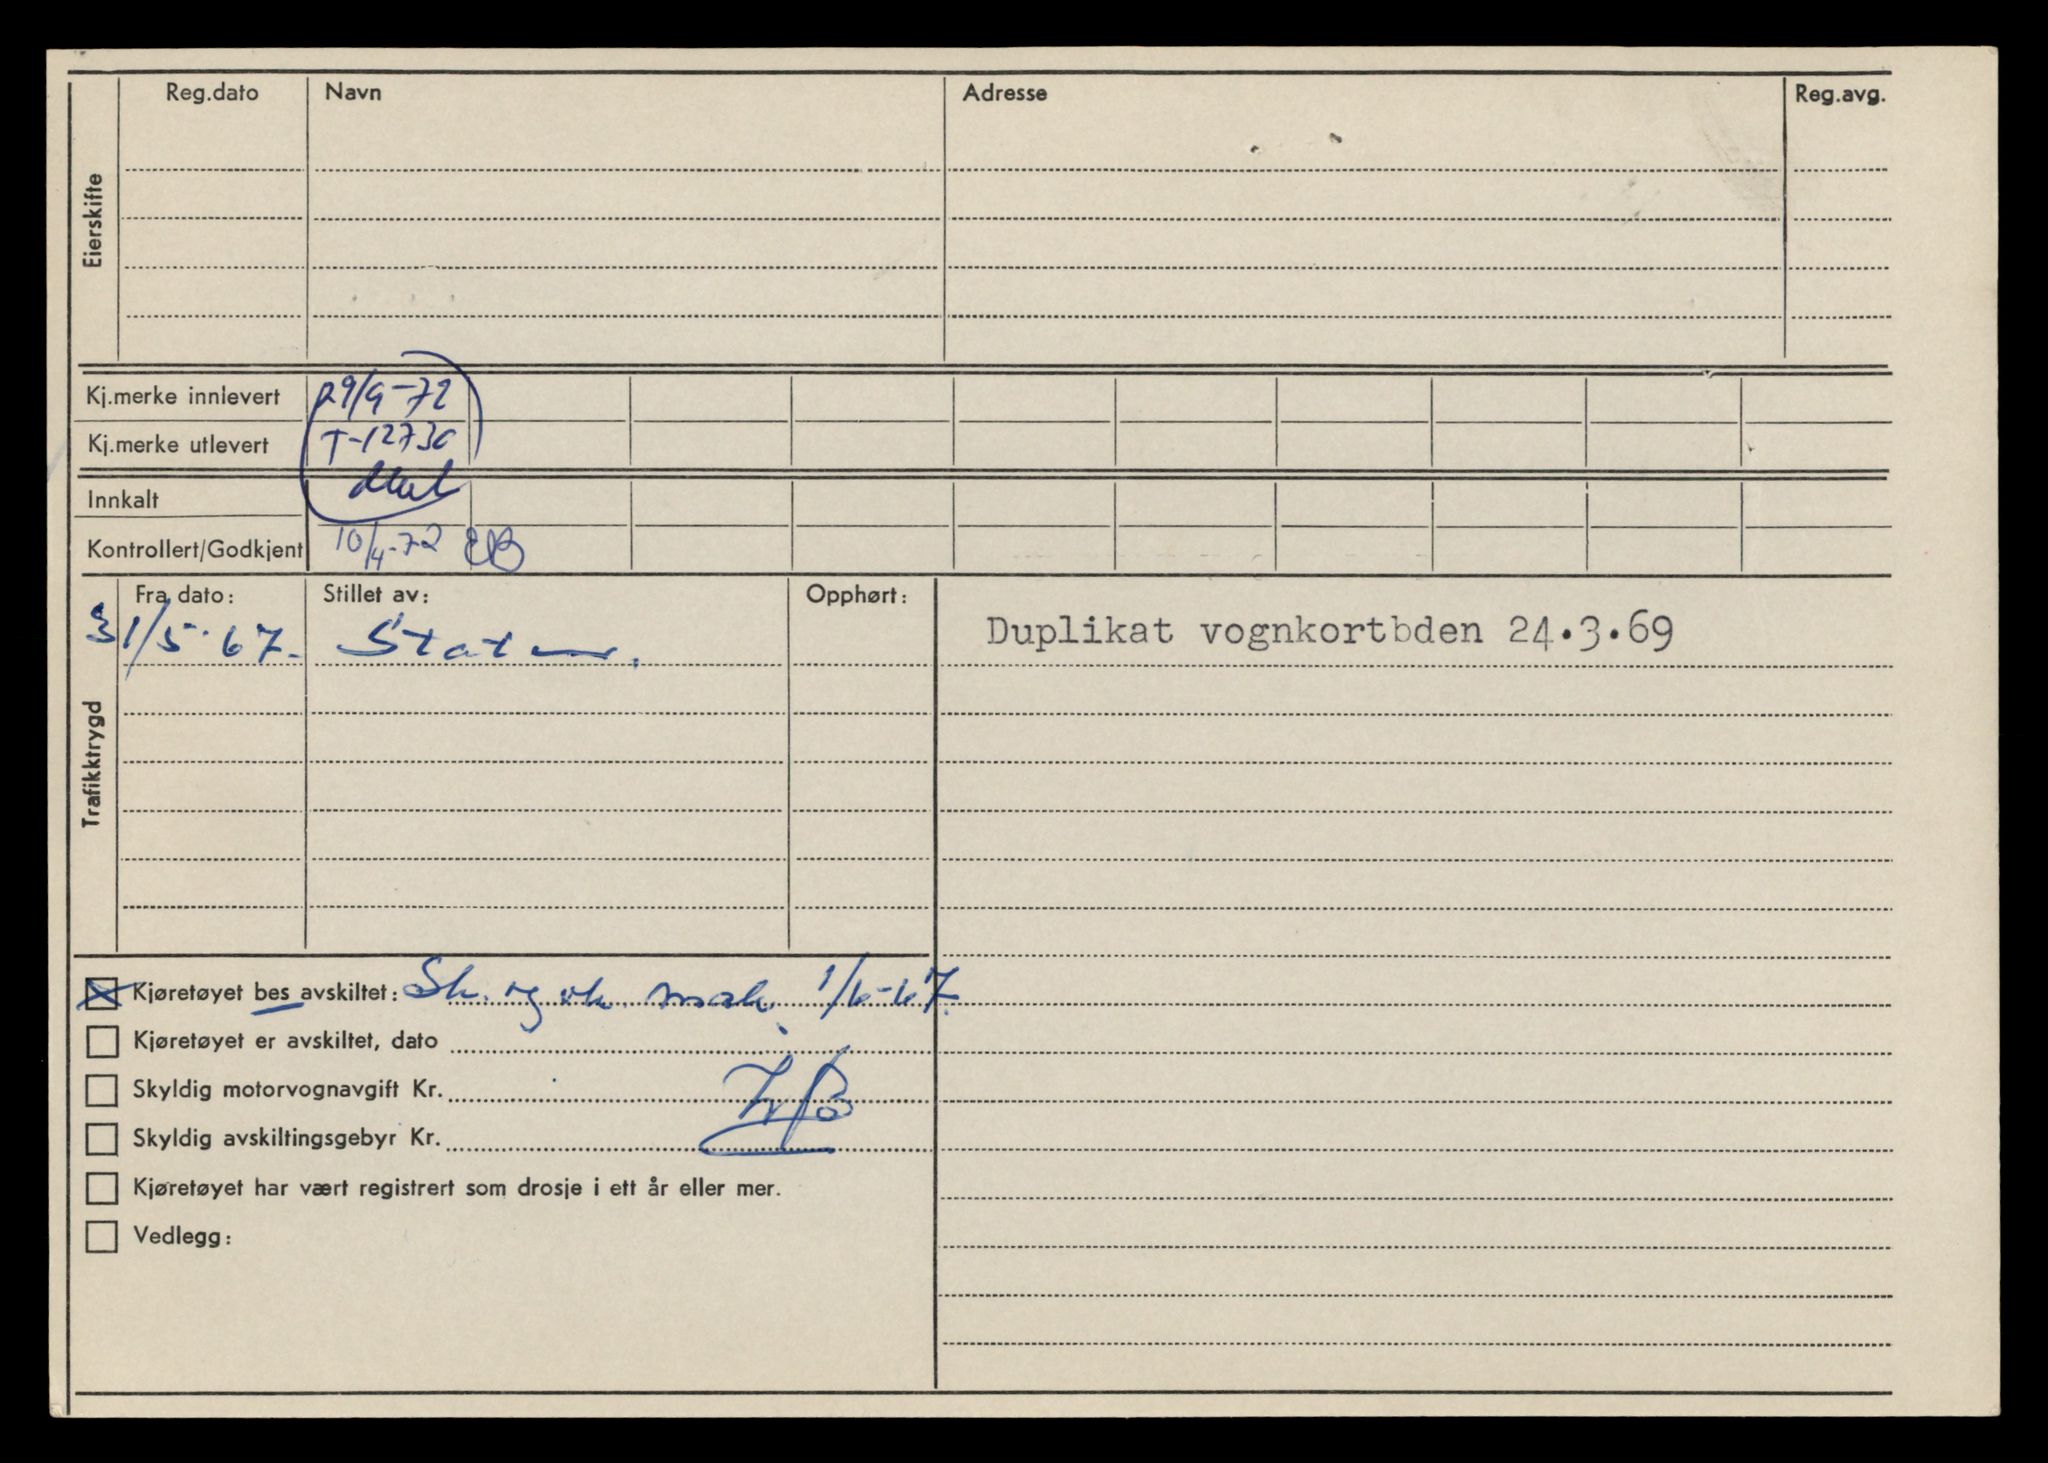 Reg.dato Navn Adresse Reg.avg.
Eierskifte
Kj.merke innlevert 29/9-72
Kj.merke utlevert T-12730
Innkalt
Kontrollert/Godkjent 10/4-72 EB
Trafikktrygd
Fra dato: Stillet av: Opphørt:
31/5-67. Staten. Duplikat vognkortbden 24.3.69
Kjøretøyet bes avskiltet: Sk. og vk. 1/6-67.
Kjøretøyet er avskiltet, dato
Skyldig motorvognavgift Kr.
Skyldig avskiltingsgebyr Kr.
Kjøretøyet har vært registrert som drosje i ett år eller mer.
Vedlegg: